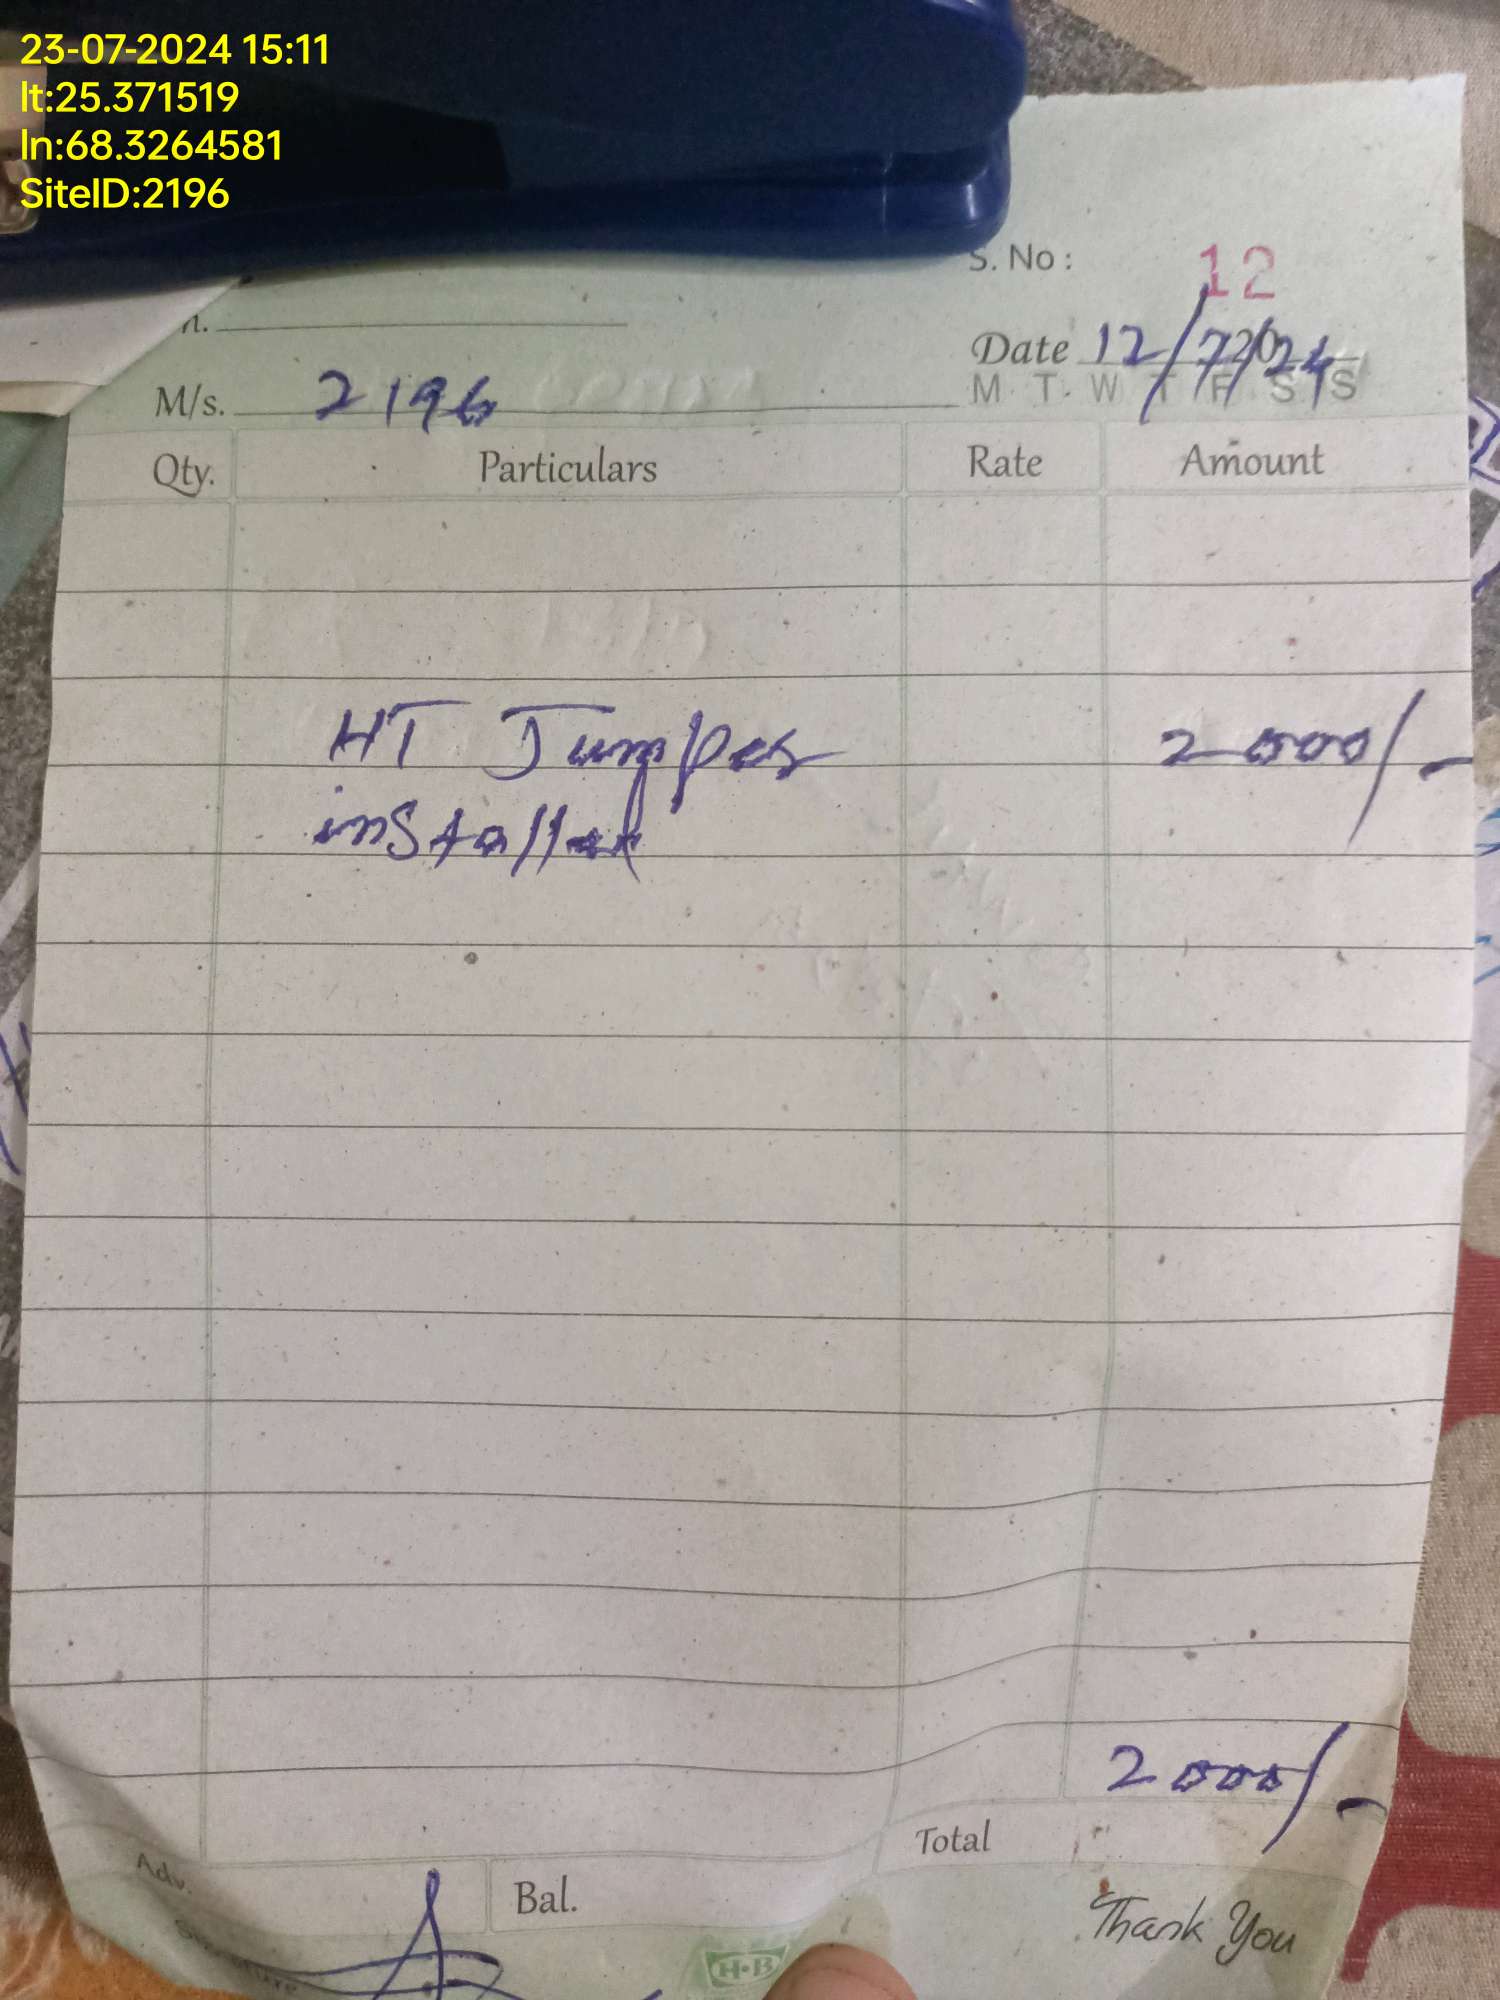 23-07-2024 15:11
lt:25.371519
ln:68.3264581
SiteID:2196
S. No : 12
Date 12/7/2024
M/s. 2196
M T W T F S S
Qty. Particulars Rate Amount
HT Jumper 2000/-
installed
2000/-
Total
Adv.
Bal.
Thank You
Signature
H·B